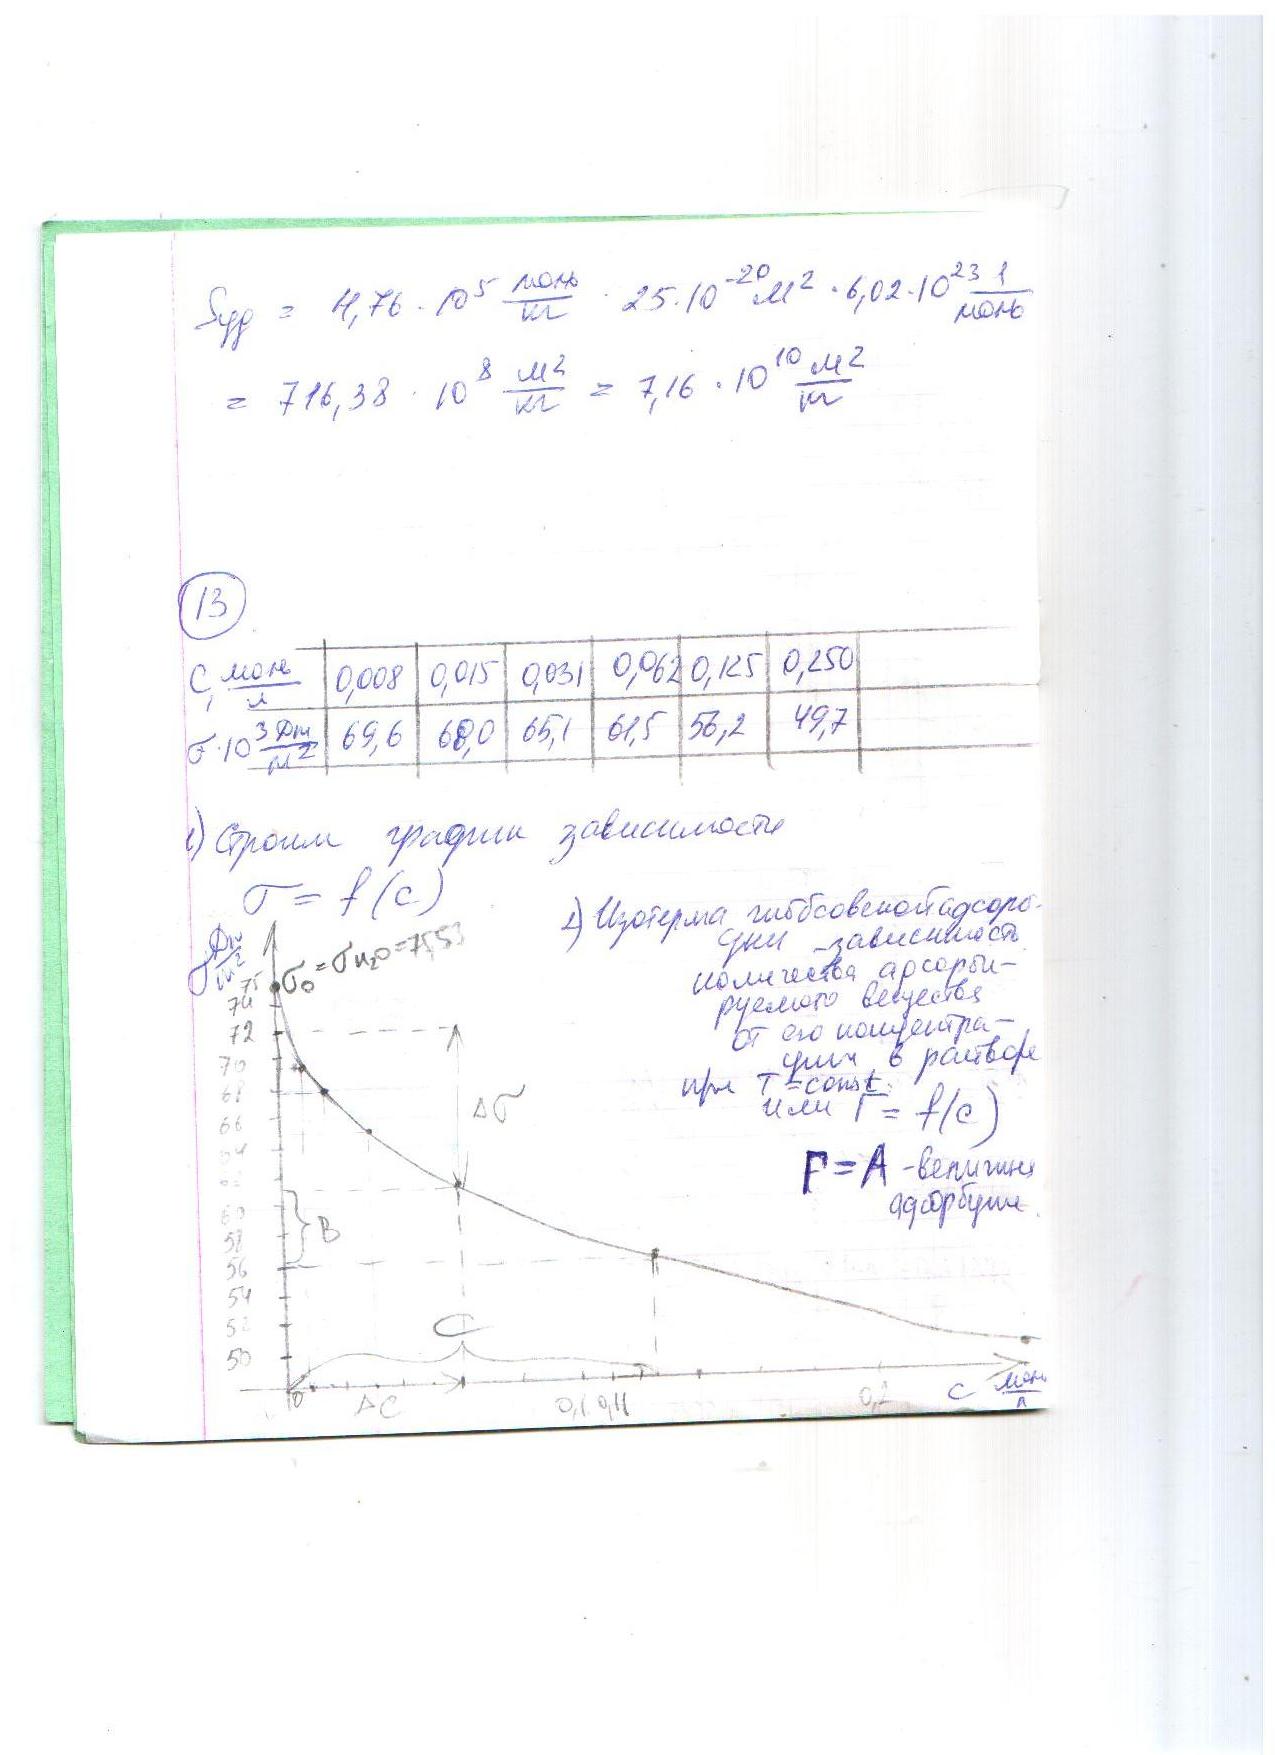 Sуд = 4,76 · 10⁵ моль/кг · 25·10⁻²⁰ м² · 6,02·10²³ 1/моль
= 716,38 · 10⁸ м²/кг = 7,16 · 10¹⁰ м²/кг
13
C, моль/л 0,008 0,015 0,031 0,062 0,125 0,250
σ·10³ Дж/м² 69,6 68,0 65,1 61,5 56,2 49,7
1) Строим график зависимости
σ = f(c)
2) Изотерма гиббсовской адсорб-
ции - зависимость
количества адсорби-
руемого вещества
от его концентра-
ции в растворе
при T = const.
или Г = f(c)
Г = A - величина
адсорбции.
σ Дж/м²
σ₀ = σн₂о = 75,53
75
74
72
70
68
66
64
60
58
56
54
52
50
Δσ
B
C
0
ΔC
0,1
0,11
0,2
C моль/л